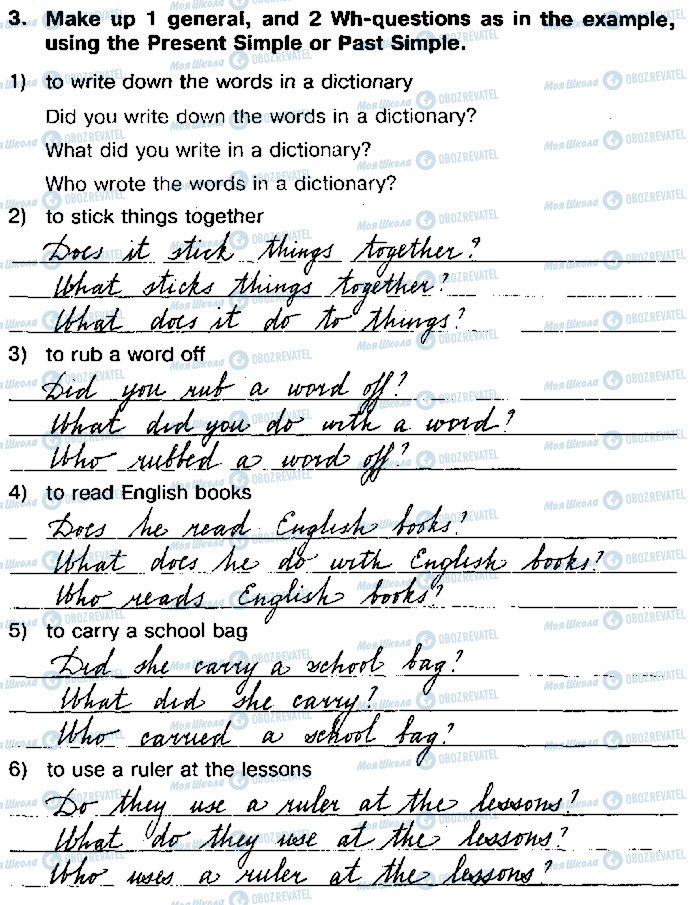 3. Make up 1 general, and 2 Wh-questions as in the example,
using the Present Simple or Past Simple.
1) to write down the words in a dictionary
Did you write down the words in a dictionary?
What did you write in a dictionary?
Who wrote the words in a dictionary?
2) to stick things together
Does it stick things together?
What sticks things together?
What does it do to things?
3) to rub a word off
Did you rub a word off?
What did you do with a word?
Who rubbed a word off?
4) to read English books
Does he read English books?
What does he do with English books?
Who reads English books?
5) to carry a school bag
Did she carry a school bag?
What did she carry?
Who carried a school bag?
6) to use a ruler at the lessons
Do they use a ruler at the lessons?
What do they use at the lessons?
Who uses a ruler at the lessons?
Моя Школа OBOZREVATEL